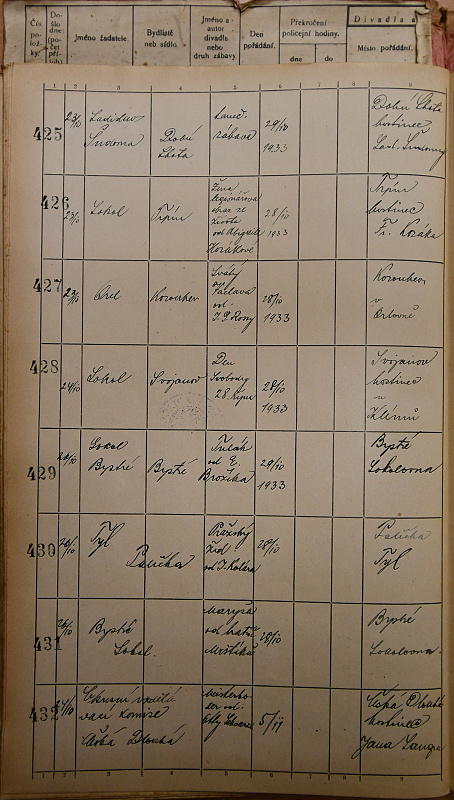 Čís. polož- ky:
Do- šlo dne: (po- čet příl.)
Jméno žadatele.
Bydliště neb sídlo.
Jméno a autor divadla nebo druh zábavy.
Den pořádání.
Překročení policejní hodiny.
dne
do
Divadla a
Místo pořádání.
1 2 3 4 5 6 7 8 9
425
23/10
Ladislav
Sudoma
Dolní
Lhota
taneč.
zábava
29/10
1933
Dolní Lhota
hostinec
Lad. Sudomy
426
23/10
Sokol
Trpín
Žena
legionářova
obraz ze
života
od Abigaile
Horákové
28/10
1933
Trpín
hostinec
Fr. Kozáka
427
23/10
Orel
Korouhev
Svatý
Václav
od
28/10
1933
Korouhev
v
Orlovně
428
24/10
Sokol
Svojanov
Den
Svobody
28. října
28/10
1933
Svojanov
hostinec
u
429
Sokol
Bystré
Bystré
Tulák
od E.
Brožíka
29/10
1933
Bystré
Sokolovna
430
26/10
Tyl
Polička
Pražský
žid
od J. Kolára
28/10
Polička
Tyl
431
26/10
Bystré
Sokol
Maryša
od bratří
Mrštíků
28/10
Bystré
Sokolovna
432
Okresní vzdělá
vací komise
Česká Dlouhá
5/11
hostinec
Jana
1 2 3 4 5 6 7 8 9